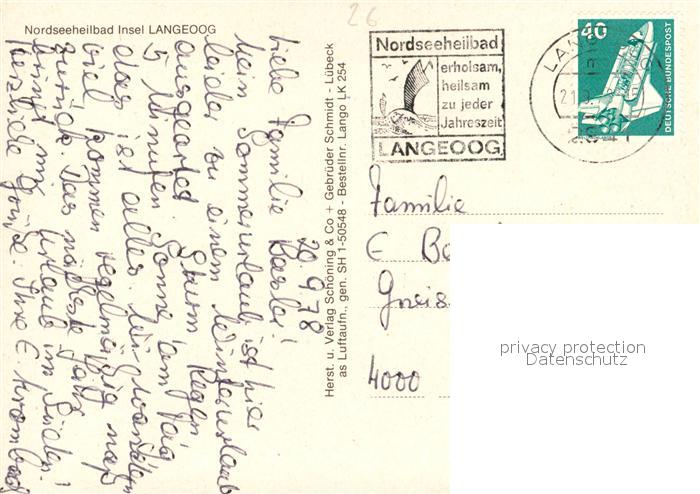 Nordseeheilbad Insel LANGEOOG
26
Nordseeheilbad
erholsam,
heilsam
zu jeder
Jahreszeit
LANGEOOG
40
DEUTSCHE BUNDESPOST
LANG
21.9
Herst. u. Verlag Schöning & Co + Gebrüder Schmidt - Lübeck
as Luftaufn., gen. SH 1-50548 - Bestellnr. Lango LK 254
20.9.78
Liebe Familie
Mein Sommerurlaub ist hier
leider zu einem Winterurlaub
ausgeartet. Sturm Regen
5 Minuten Sonne am Tag
das ist alles. Wir wandern
viel, kommen regelmäßig naß
zurück. Das nächste Jahr
Urlaub im Süden!
herzliche Grüße Ihre E
Familie
E Be
Gneis
4000
privacy protection
Datenschutz